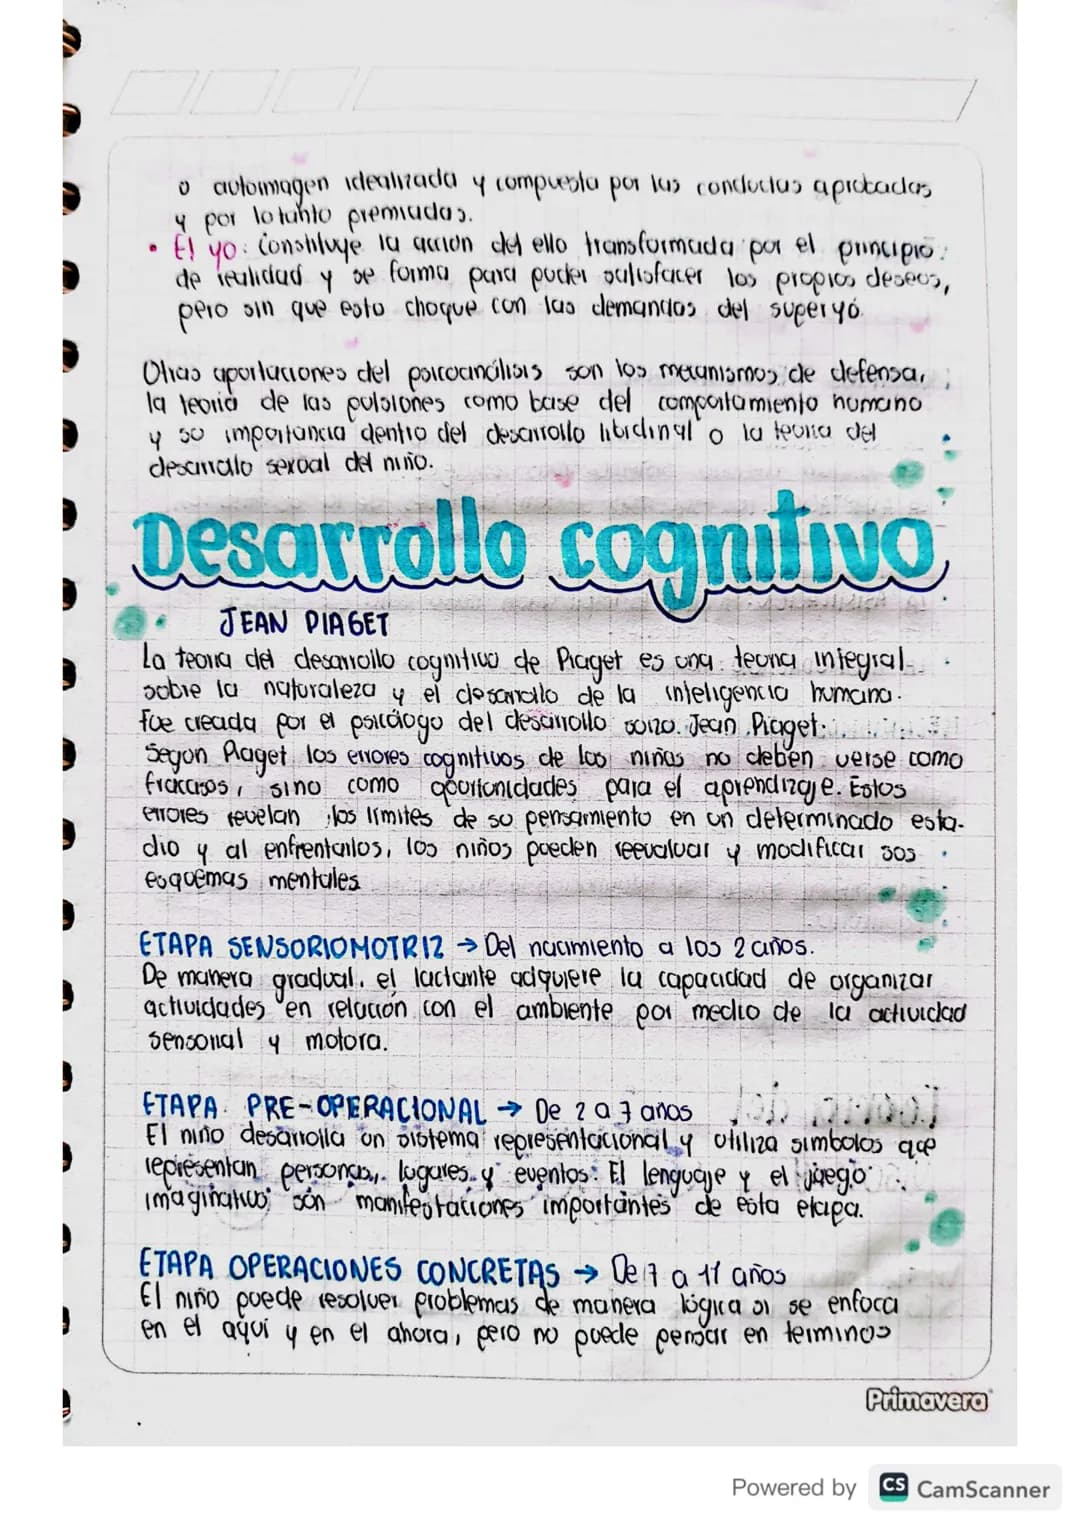 o autoimagen idealizada y compuesta por las conductas aprobadas
y por lo tanto premiadas.
• El yo: Constituye la acción del ello transformada por el principio
de realidad y se forma para poder satisfacer los propios deseos,
pero sin que esto choque con las demandas del superyó.
Otras aportaciones del psicoanálisis son los mecanismos de defensa,
la teoría de las pulsiones como base del comportamiento humano
y su importancia dentro del desarrollo libidinal o la teoría del
desarrollo sexual del niño.
Desarrollo cognitivo
JEAN PIAGET
La teoria del desarrollo cognitivo de Piaget es una teoria integral
sobre la naturaleza y el desarrollo de la inteligencia humana.
fue creada por el psicólogo del desarrollo suizo Jean Piaget.
Segun Piaget los errores cognitivos de los niños no deben verse como
fracasos, sino como oportunidades para el aprendizaje. Estos
errores revelan los límites de su pensamiento en un determinado esta-
dio y al enfrentarlos, los niños pueden reevaluar y modificar sus
esquemas mentales
ETAPA SENSORIOMOTRIZ → Del nacimiento a los 2 años.
De manera gradual, el lactante adquiere la capacidad de organizar
actividades en relación con el ambiente por medio de la actividad
sensorial y motora.
ETAPA PRE-OPERACIONAL → De 2 a 7 años
El niño desarrolla un sistema representacional y utiliza simbolos que
representan personas, lugares y eventos. El lenguaje y el juego
imaginativo son manifestaciones importantes de esta etapa.
ETAPA OPERACIONES CONCRETAS → De 7 a 11 años
El niño puede resolver problemas de manera lógica si se enfoca
en el aquí y en el ahora, pero no puede pensar en terminos
Primavera
Powered by CS CamScanner